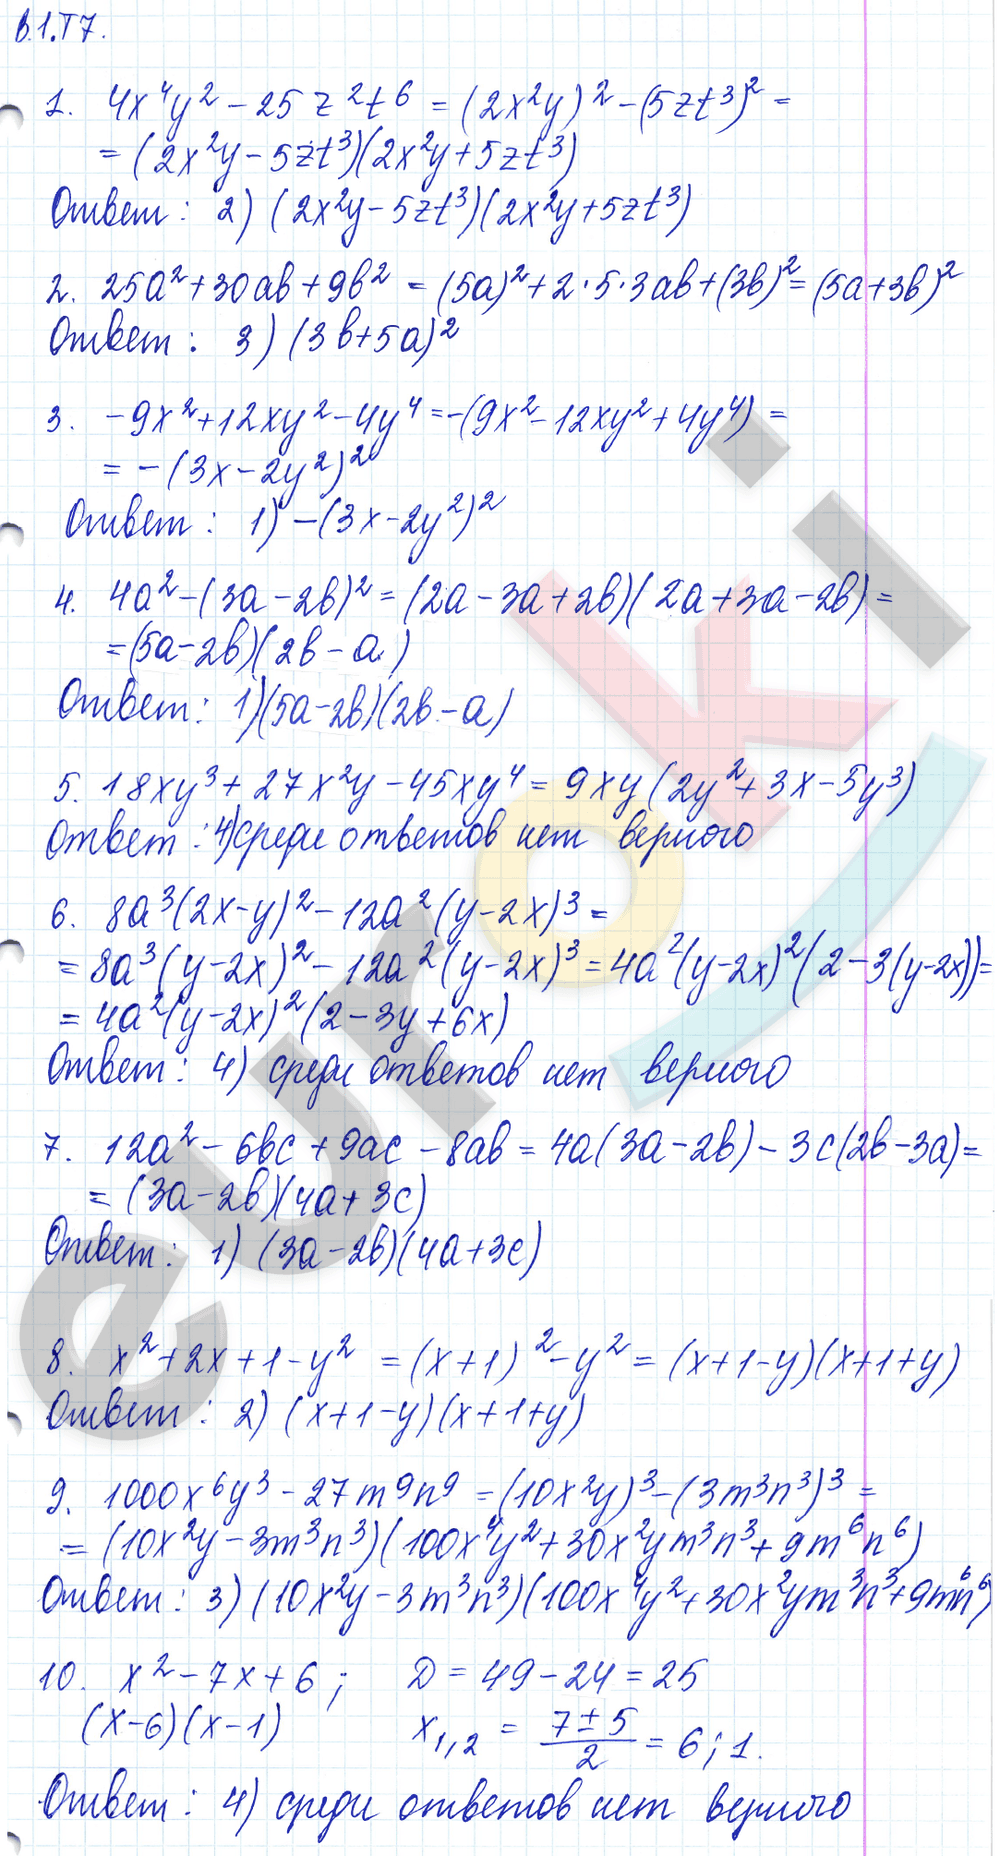 В.1.Т7.
1. 4x⁴y² - 25z²t⁶ = (2x²y)² - (5zt³)² =
= (2x²y - 5zt³)(2x²y + 5zt³)
Ответ: 2) (2x²y - 5zt³)(2x²y + 5zt³)
2. 25a² + 30ab + 9b² = (5a)² + 2·5·3ab + (3b)² = (5a + 3b)²
Ответ: 3) (3b + 5a)²
3. -9x² + 12xy² - 4y⁴ = -(9x² - 12xy² + 4y⁴) =
= -(3x - 2y²)²
Ответ: 1) -(3x - 2y²)²
4. 4a² - (3a - 2b)² = (2a - 3a + 2b)(2a + 3a - 2b) =
= (5a - 2b)(2b - a)
Ответ: 1) (5a - 2b)(2b - a)
5. 18xy³ + 27x²y - 45xy⁴ = 9xy(2y² + 3x - 5y³)
Ответ: 4) среди ответов нет верного
6. 8a³(2x - y)² - 12a²(y - 2x)³ =
= 8a³(y - 2x)² - 12a²(y - 2x)³ = 4a²(y - 2x)²(2 - 3(y - 2x)) =
= 4a²(y - 2x)²(2 - 3y + 6x)
Ответ: 4) среди ответов нет верного
7. 12a² - 6bc + 9ac - 8ab = 4a(3a - 2b) - 3c(2b - 3a) =
= (3a - 2b)(4a + 3c)
Ответ: 1) (3a - 2b)(4a + 3c)
8. x² + 2x + 1 - y² = (x + 1)² - y² = (x + 1 - y)(x + 1 + y)
Ответ: 2) (x + 1 - y)(x + 1 + y)
9. 1000x⁶y³ - 27m⁹n⁹ = (10x²y)³ - (3m³n³)³ =
= (10x²y - 3m³n³)(100x⁴y² + 30x²ym³n³ + 9m⁶n⁶)
Ответ: 3) (10x²y - 3m³n³)(100x⁴y² + 30x²ym³n³ + 9m⁶n⁶)
10. x² - 7x + 6; D = 49 - 24 = 25
(x - 6)(x - 1) x₁,₂ = (7 ± 5)/2 = 6; 1.
Ответ: 4) среди ответов нет верного
euroki